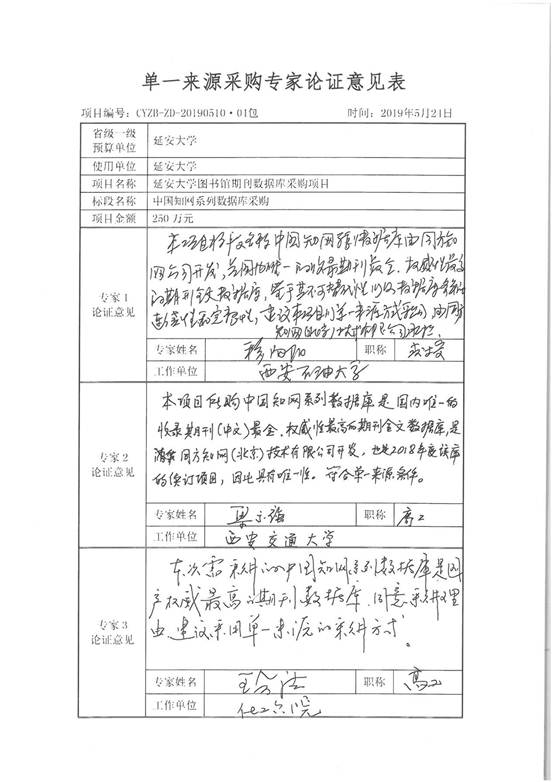 单一来源采购专家论证意见表
项目编号：CYZB-ZD-20190510·01包 时间：2019年5月21日
省级一级预算单位 延安大学
使用单位 延安大学
项目名称 延安大学图书馆期刊数据库采购项目
标段名称 中国知网系列数据库采购
项目金额 250 万元
专家1论证意见
中国知网 数据库由同方知
网公司开发，是国内唯一的收录期刊最全、权威性最高
的期刊全文数据库，
专家姓名 职称
工作单位 西安石油大学
专家2论证意见
本项目所购中国知网系列数据库是国内唯一的
收录期刊(中文)最全、权威性最高的期刊全文数据库，是
同方知网(北京)技术有限公司开发，也是2018年度该库
的续订项目，因此具有唯一性。符合单一来源条件。
专家姓名 职称 高工
工作单位 西安交通大学
专家3论证意见
本次需采购的中国知网系列数据库是国
产权威最高的期刊数据库，同意采购理
由，建议采用单一来源的采购方式。
专家姓名 职称 高工
工作单位